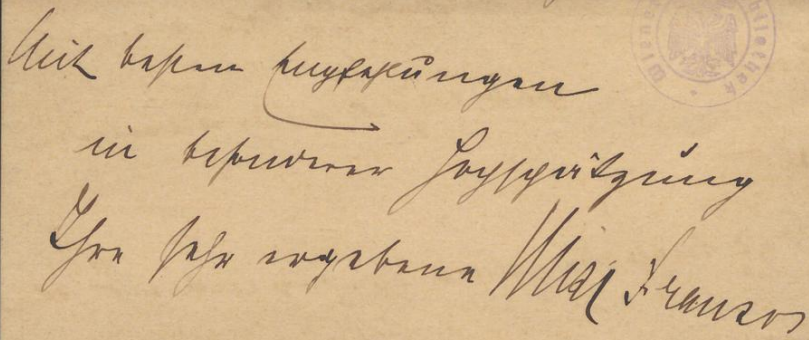 Mit besten Empfehlungen
in besonderer Hochschätzung
Ihre sehr ergebene Mizi Franzos